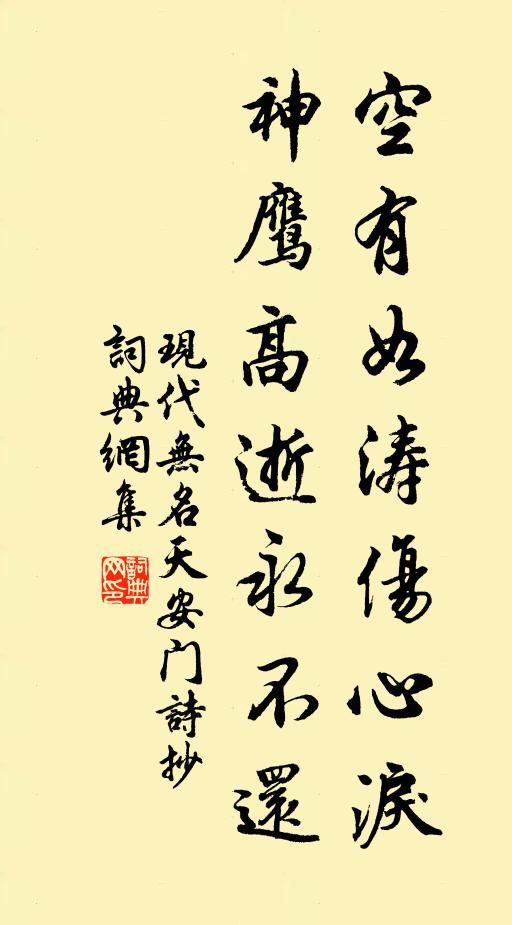 空有如涛傷心淚
神鹰高逝永不還
現代無名天安门詩抄
詞典網集
詞典网印